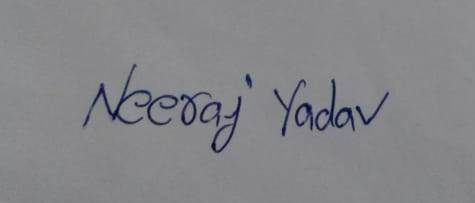 Neeraj Yadav